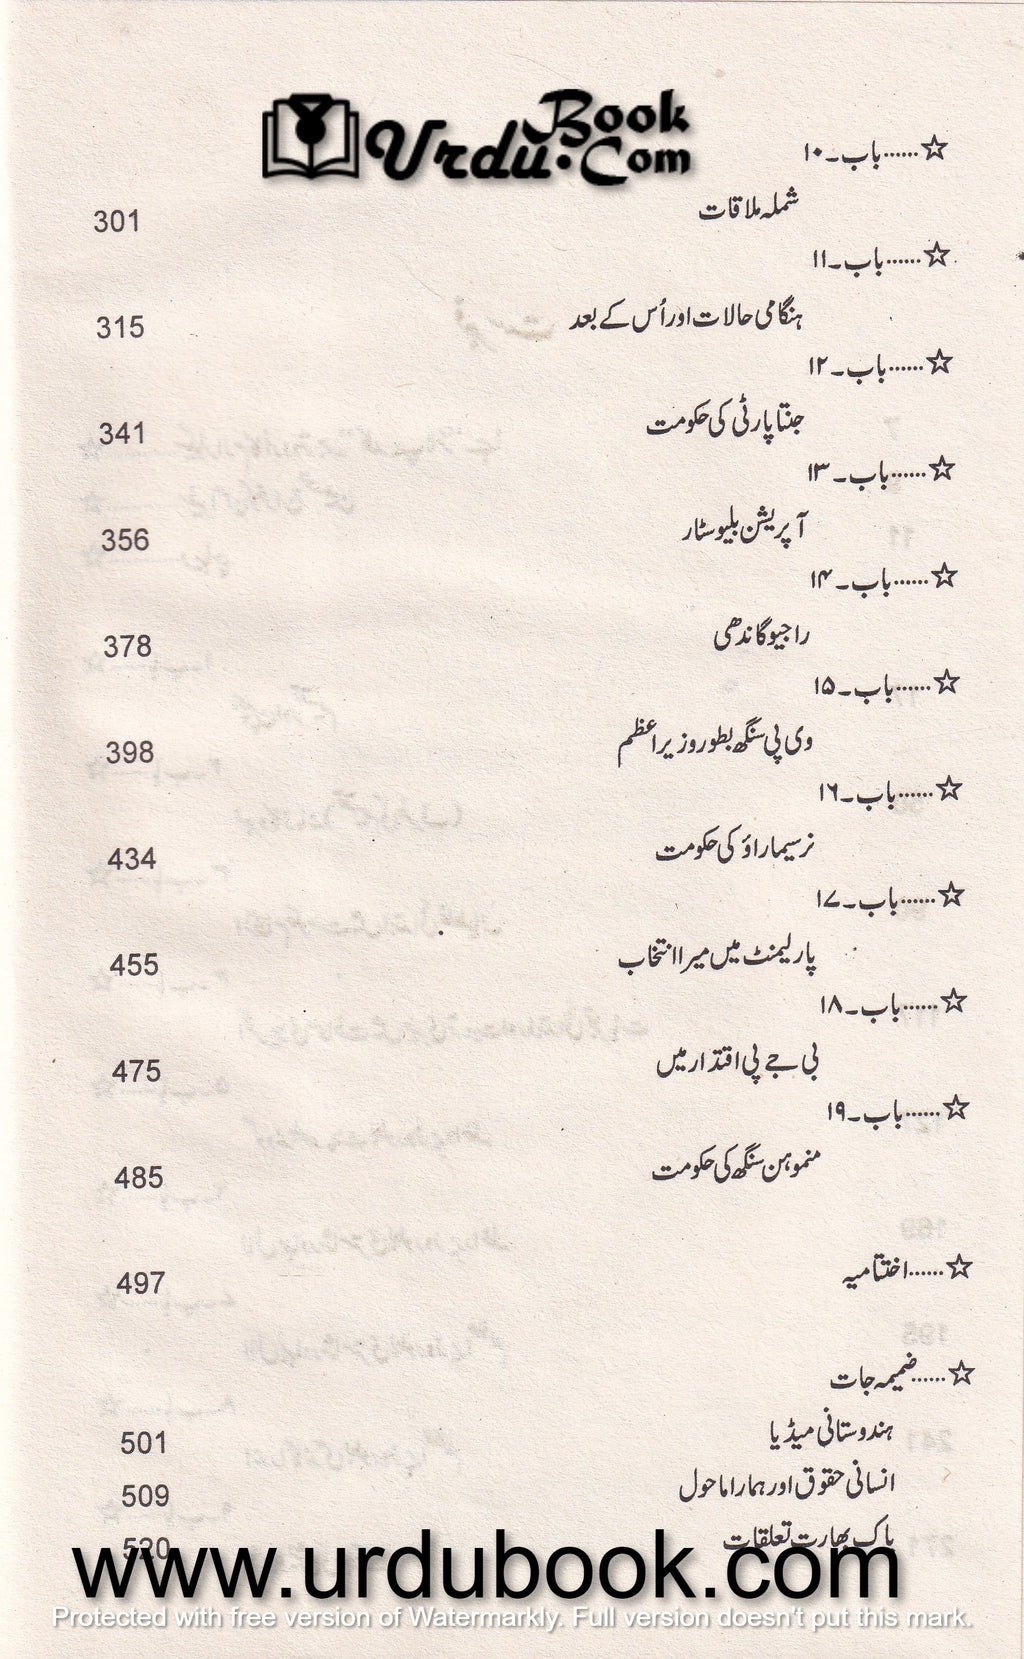 UrduBook.Com
☆......باب۔۱۰
شملہ ملاقات 301
☆......باب۔۱۱
ہنگامی حالات اور اُس کے بعد 315
☆......باب۔۱۲
جنتا پارٹی کی حکومت 341
☆......باب۔۱۳
آپریشن بلیوسٹار 356
☆......باب۔۱۴
راجیو گاندھی 378
☆......باب۔۱۵
وی پی سنگھ بطور وزیراعظم 398
☆......باب۔۱۶
نرسیماراؤ کی حکومت 434
☆......باب۔۱۷
پارلیمنٹ میں میرا انتخاب 455
☆......باب۔۱۸
بی جے پی اقتدار میں 475
☆......باب۔۱۹
منموہن سنگھ کی حکومت 485
☆......اختتامیہ 497
☆......ضمیمہ جات
ہندوستانی میڈیا 501
انسانی حقوق اور ہمارا ماحول 509
پاک بھارت تعلقات 520
www.urdubook.com
Protected with free version of Watermarkly. Full version doesn't put this mark.